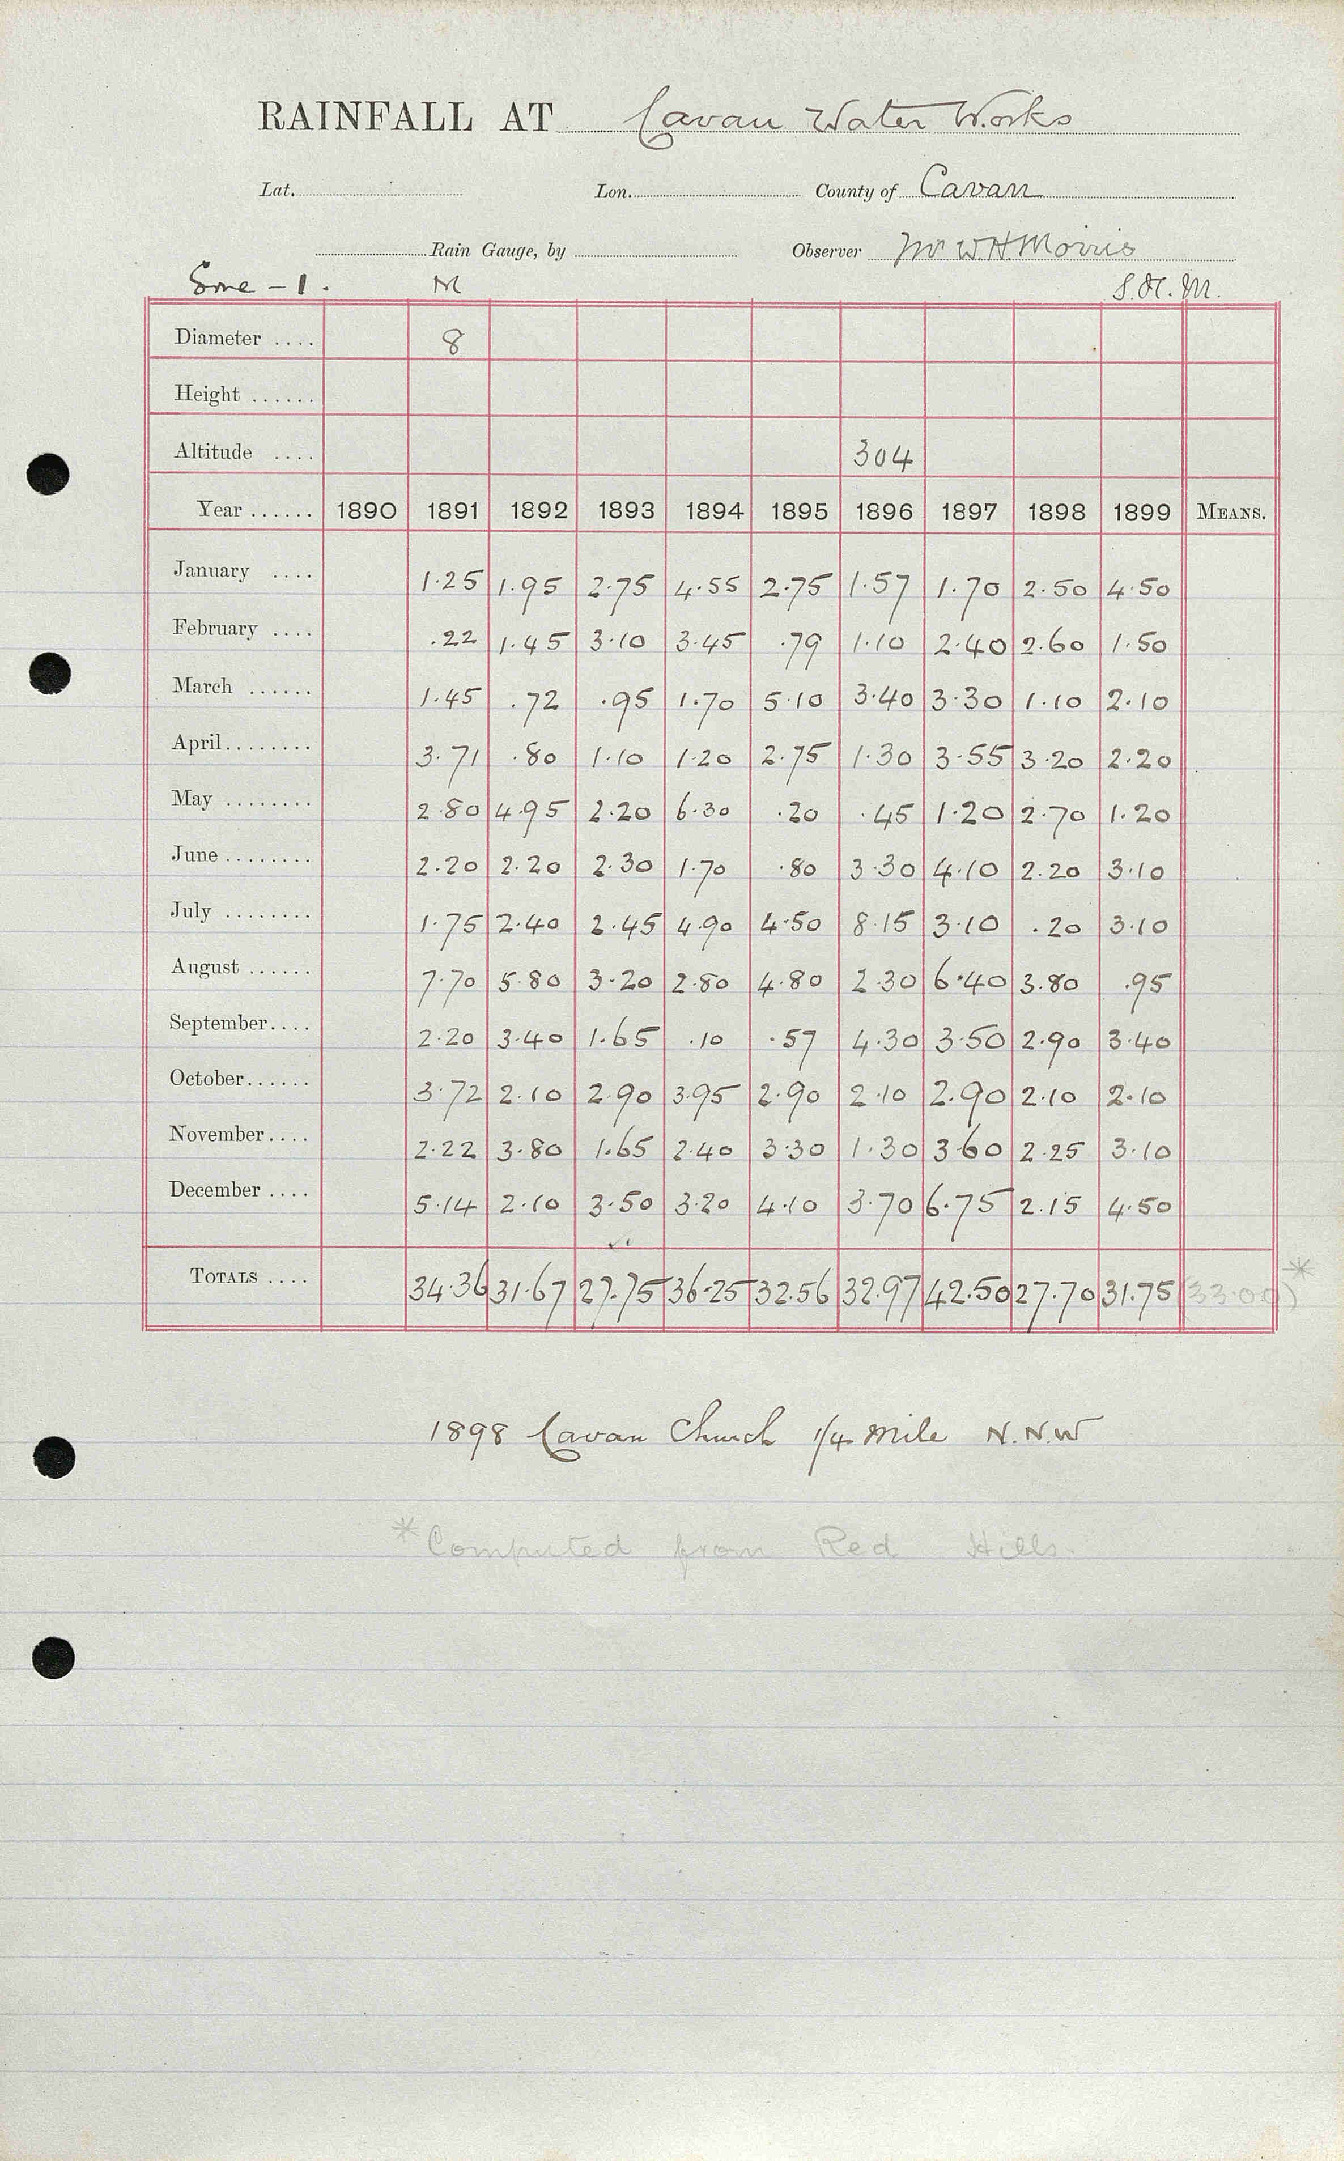 RAINFALL AT Cavan Water Works
Lat. Lon. County of Cavan
Rain Gauge, by Observer Mr W H Morris
M S.H.M.
Diameter .... 8
Height ......
Altitude .... 304
Year ...... 1890 1891 1892 1893 1894 1895 1896 1897 1898 1899 MEANS.
January .... 1.25 1.95 2.75 4.55 2.75 1.57 1.70 2.50 4.50
February .... .22 1.45 3.10 3.45 .79 1.10 2.40 2.60 1.50
March ...... 1.45 .72 .95 1.70 5.10 3.40 3.30 1.10 2.10
April........ 3.71 .80 1.10 1.20 2.75 1.30 3.55 3.20 2.20
May ........ 2.80 4.95 2.20 6.30 .20 .45 1.20 2.70 1.20
June ........ 2.20 2.20 2.30 1.70 .80 3.30 4.10 2.20 3.10
July ........ 1.75 2.40 2.45 4.90 4.50 8.15 3.10 .20 3.10
August ...... 7.70 5.80 3.20 2.80 4.80 2.30 6.40 3.80 .95
September.... 2.20 3.40 1.65 .10 .57 4.30 3.50 2.90 3.40
October...... 3.72 2.10 2.90 3.95 2.90 2.10 2.90 2.10 2.10
November.... 2.22 3.80 1.65 2.40 3.30 1.30 3.60 2.25 3.10
December .... 5.14 2.10 3.50 3.20 4.10 3.70 6.75 2.15 4.50
TOTALS .... 34.36 31.67 27.75 36.25 32.56 32.97 42.50 27.70 31.75 (33.00)*
1898 Cavan Church 1/4 mile N.N.W
* Computed from Red Hills.